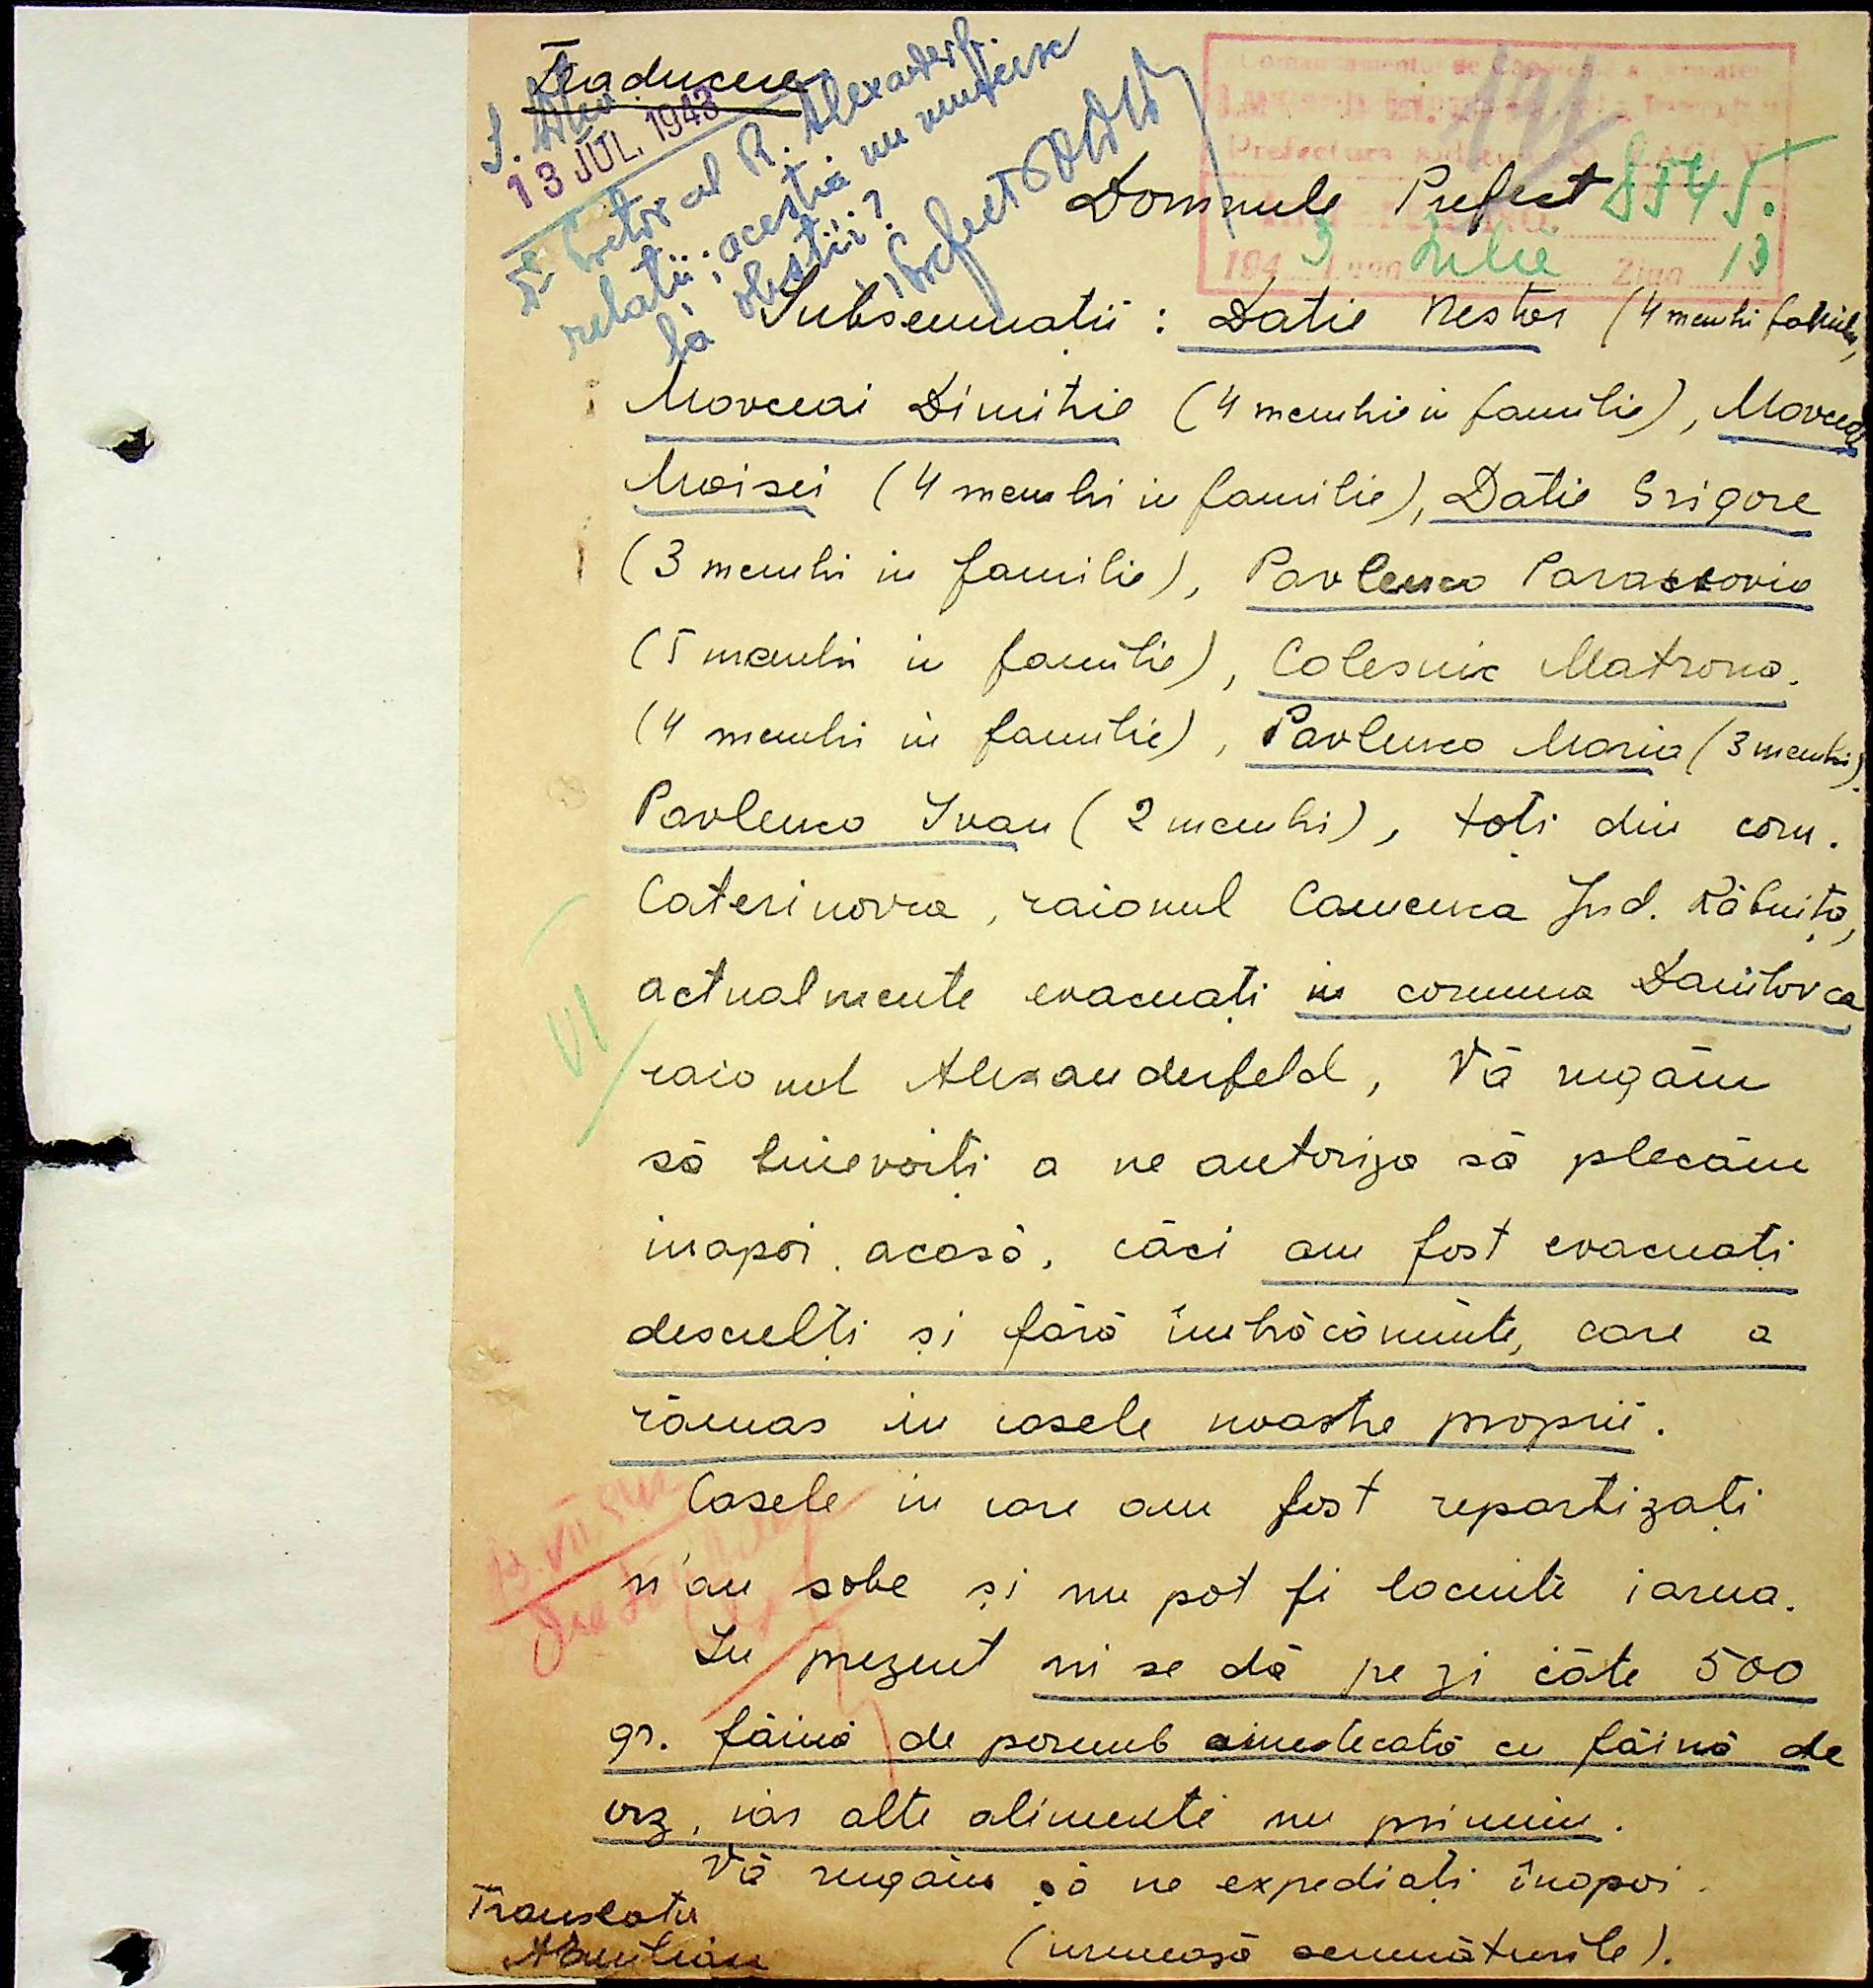 Traducere
13 JUL. 1943
Pretor al R. Alexanderf.
relații: aceștia nu muncesc
la obștii?
Prefect
Prefectura
8545.
194 3 Luna Iulie Ziua 13
Domnule Prefect
Subsemnații : Datie Nestor (4 membri familie,
Movceai Dimitrie (4 membri in familie), Movceai
Moisei (4 membri in familie), Datie Grigore
(3 membri in familie), Pavlenco Parascovia
(5 membri in familie), Colesnic Matrona.
(4 membri in familie), Pavlenco Maria (3 membri).
Pavlenco Ivan (2 membri), toți din com.
Caterinovca, raionul Camenca Jud. Râbnița,
actualmente evacuați in comuna Danilovca
raionul Alexanderfeld, Vă rugăm
să binevoiți a ne autoriza să plecăm
inapoi acasă, căci am fost evacuați
desculți și fără îmbrăcăminte, care a
rămas in casele noastre proprii.
Casele in care am fost repartizați
n'au sobe și nu pot fi locuite iarna.
In prezent ni se dă pe zi câte 500
gr. făină de porumb amestecată cu făină de
orz, iar alte alimente nu primim.
Vă rugăm să ne expediați înapoi.
(urmează semnăturile).
Translator
VI
13.VII.